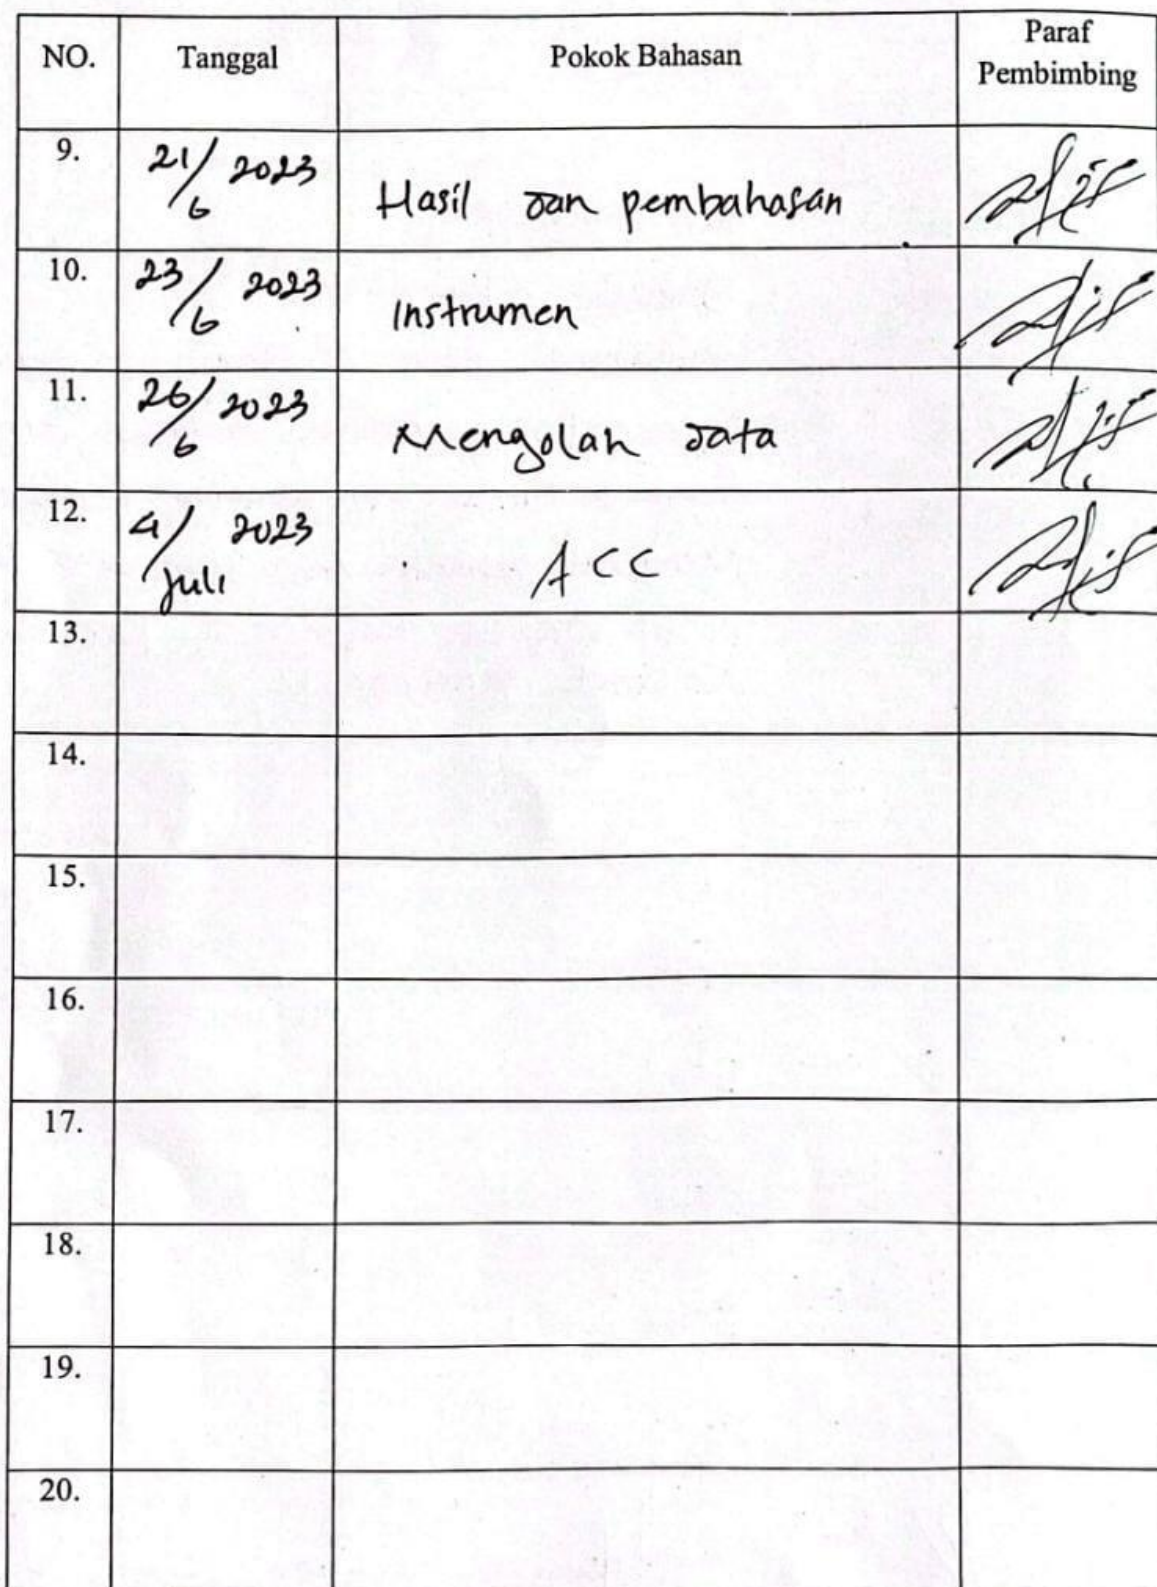 NO. Tanggal Pokok Bahasan Paraf
Pembimbing
9. 21/6 2023 Hasil dan pembahasan
10. 23/6 2023 Instrumen
11. 26/6 2023 Mengolah data
12. 4/Juli 2023 ACC
13.
14.
15.
16.
17.
18.
19.
20.